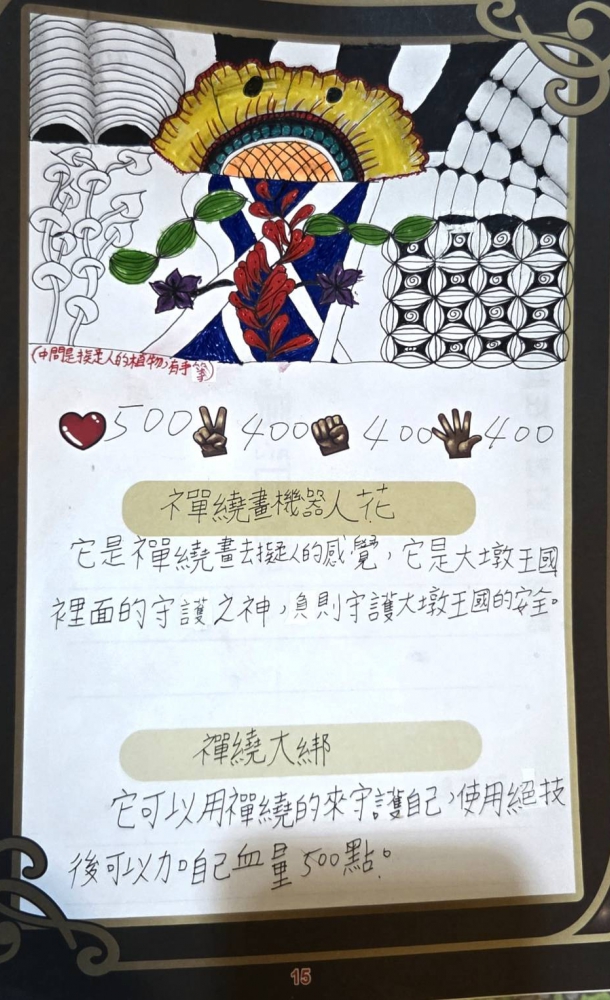 (中間是擬是人的植物,有手等)
500 400 400 400
禪繞畫機器人花
它是禪繞畫去擬人的感覺,它是大墩王國
裡面的守護之神,負則守護大墩王國的安全。
禪繞大綁
它可以用禪繞的來守護自己,使用絕技
後可以加自己血量500點。
15